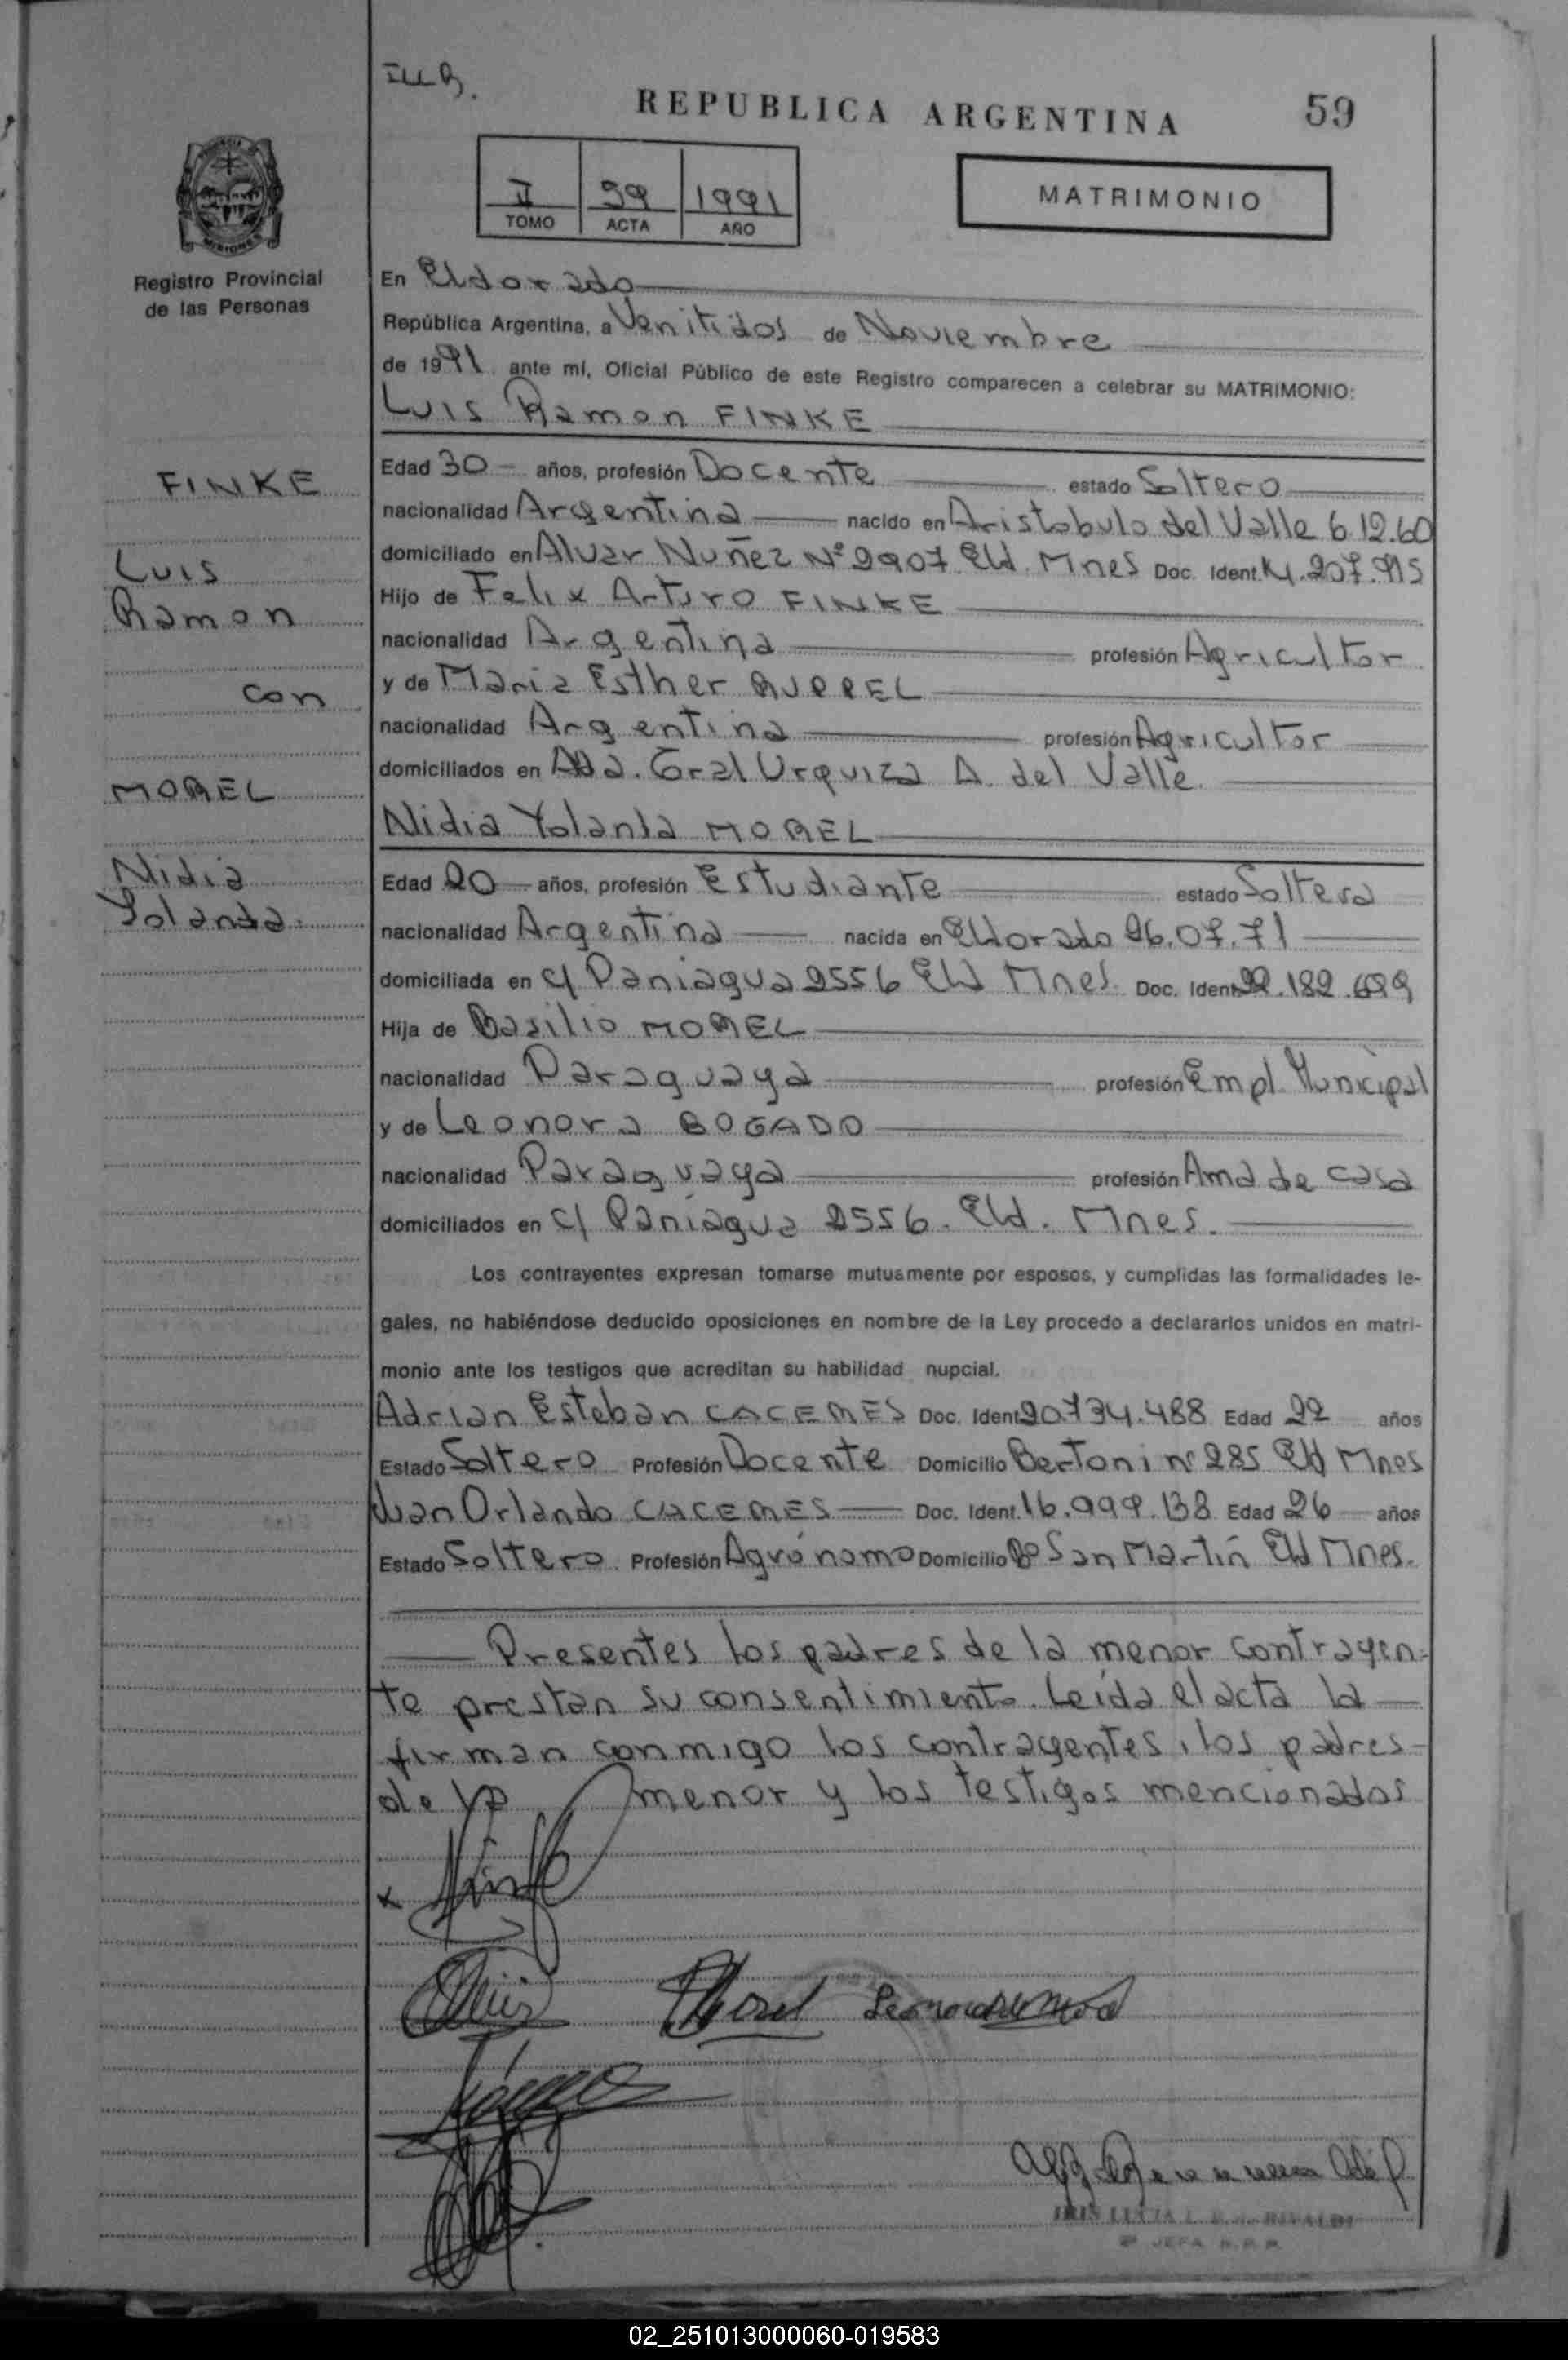 REPUBLICA ARGENTINA
59
II 59 1991
TOMO ACTA AÑO
MATRIMONIO
MISIONES
Registro Provincial
de las Personas
En Eldorado
República Argentina, a Venitidos de Noviembre
de 1991 ante mí, Oficial Público de este Registro comparecen a celebrar su MATRIMONIO:
Luis Ramon FINKE
FINKE
Luis
Ramon
con
MOREL
Nidia
Yolanda
Edad 30 años, profesión Docente estado Soltero
nacionalidad Argentina nacido en Aristobulo del Valle 6.12.60
domiciliado en Alvar Nuñez Nº 2907 Eld. Mnes Doc. Ident. 14.207.915
Hijo de Felix Arturo FINKE
nacionalidad Argentina profesión Agricultor
y de Maria Esther
nacionalidad Argentina profesión Agricultor
domiciliados en Gral Urquiza A. del Valle
Nidia Yolanda MOREL
Edad 20 años, profesión Estudiante estado Soltera
nacionalidad Argentina nacida en Eldorado 26.07.71
domiciliada en c/ Paniagua 2556 Eld Mnes. Doc. Ident. 22.182.699
Hija de Basilio MOREL
nacionalidad Paraguaya profesión Empl. Municipal
y de Leonora BOGADO
nacionalidad Paraguaya profesión Ama de casa
domiciliados en c/ Paniagua 2556. Eld. Mnes.
Los contrayentes expresan tomarse mutuamente por esposos, y cumplidas las formalidades le-
gales, no habiéndose deducido oposiciones en nombre de la Ley procedo a declararlos unidos en matri-
monio ante los testigos que acreditan su habilidad nupcial.
Adrian Esteban CACERES Doc. Ident. 20.734.488 Edad 22 años
Estado Soltero Profesión Docente Domicilio Bertoni nº 285 Eld Mnes
Juan Orlando CACERES Doc. Ident. 16.999.138 Edad 26 años
Estado Soltero. Profesión Agrónomo Domicilio Bº San Martín Eld Mnes.
Presentes los padres de la menor contrayen-
te prestan su consentimiento. Leída el acta la
firman conmigo los contrayentes, los padres
de la menor y los testigos mencionados
IRIS LUCIA RIVALDI
JEFA R.P.P.
02_251013000060-019583